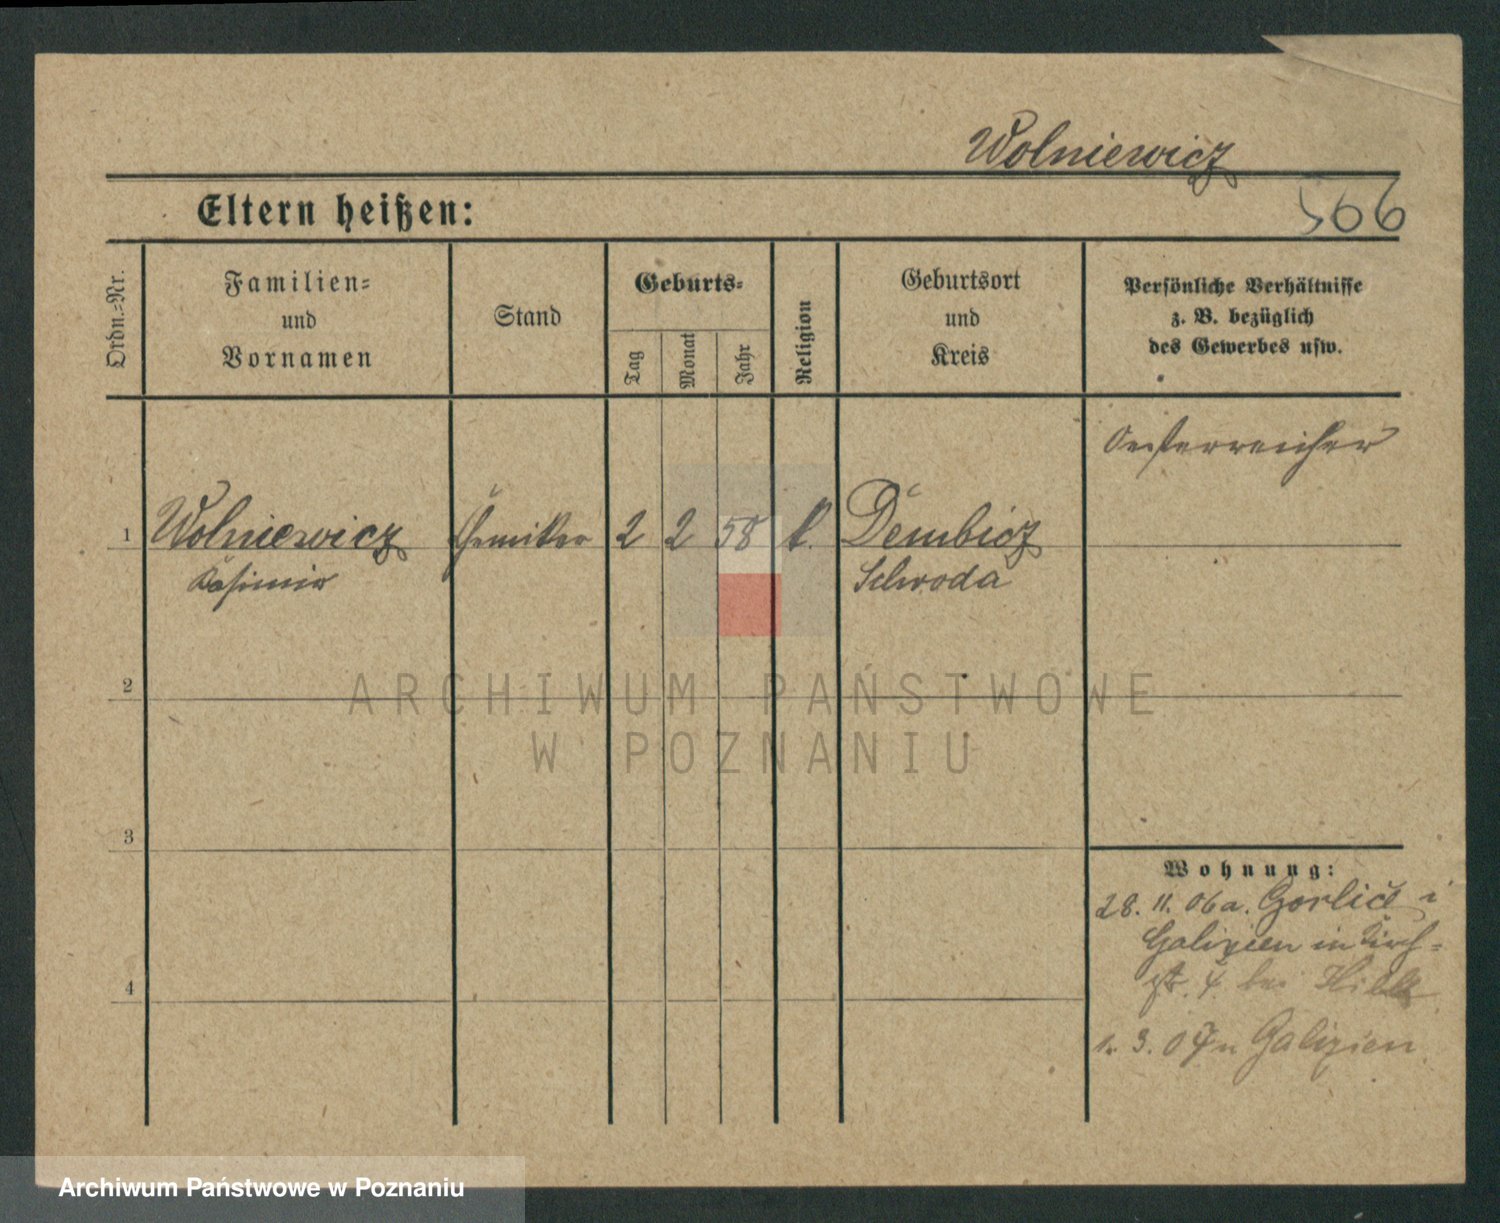 Wolniewicz
566
Eltern heißen:
Ordn.=Nr.
Familien=
und
Vornamen
Stand
Geburts=
Tag
Monat
Jahr
Religion
Geburtsort
und
Kreis
Persönliche Verhältnisse
z. B. bezüglich
des Gewerbes usw.
Oesterreicher
1 Wolniewicz Chemiker 2 2 58 k. Dembicz
Kasimir Schroda
2
ARCHIWUM PAŃSTWOWE
W POZNANIU
3
Wohnung:
28. 11. 06 a. Gorlice i
Galizien in Kirch=
4
str. 4 bei
1. 3. 07 n Galizien
Archiwum Państwowe w Poznaniu